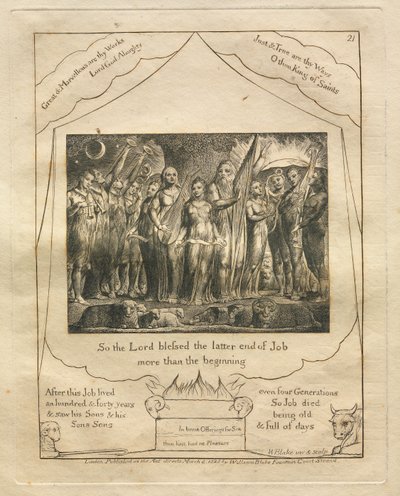 21
Great & Marvellous are thy Works
Lord God Almighty
Just & True are thy Ways
O thou King of Saints
So the Lord blessed the latter end of Job
more than the beginning
After this Job lived
an hundred & forty years
& saw his Sons & his
Sons Sons
even four Generations
So Job died
being old
& full of days
In burnt Offerings for Sin
thou hast had no Pleasure
W Blake inv & sculp
London. Published as the Act directs March 8: 1825 by William Blake Fountain Court Strand